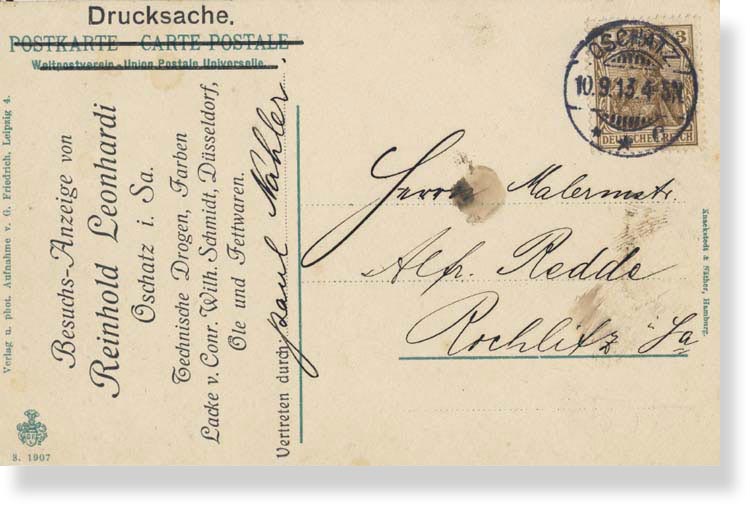 Drucksache.
POSTKARTE – CARTE POSTALE
Weltpostverein – Union Postale Universelle.
OSCHATZ
10.9.13.4-5N.
* * c
3
DEUTSCHES REICH
Besuchs-Anzeige von
Reinhold Leonhardi
Oschatz i. Sa.
Technische Drogen, Farben
Lacke v. Conr. Wilh. Schmidt, Düsseldorf,
Öle und Fettwaren.
Vertreten durch: Paul Nahler.
Herrn Malermstr.
Alfr. Redde
Rochlitz i. Sa
Verlag u. phot. Aufnahme v. G. Friedrich, Leipzig 4.
Knackstedt & Näther, Hamburg.
S. 1907